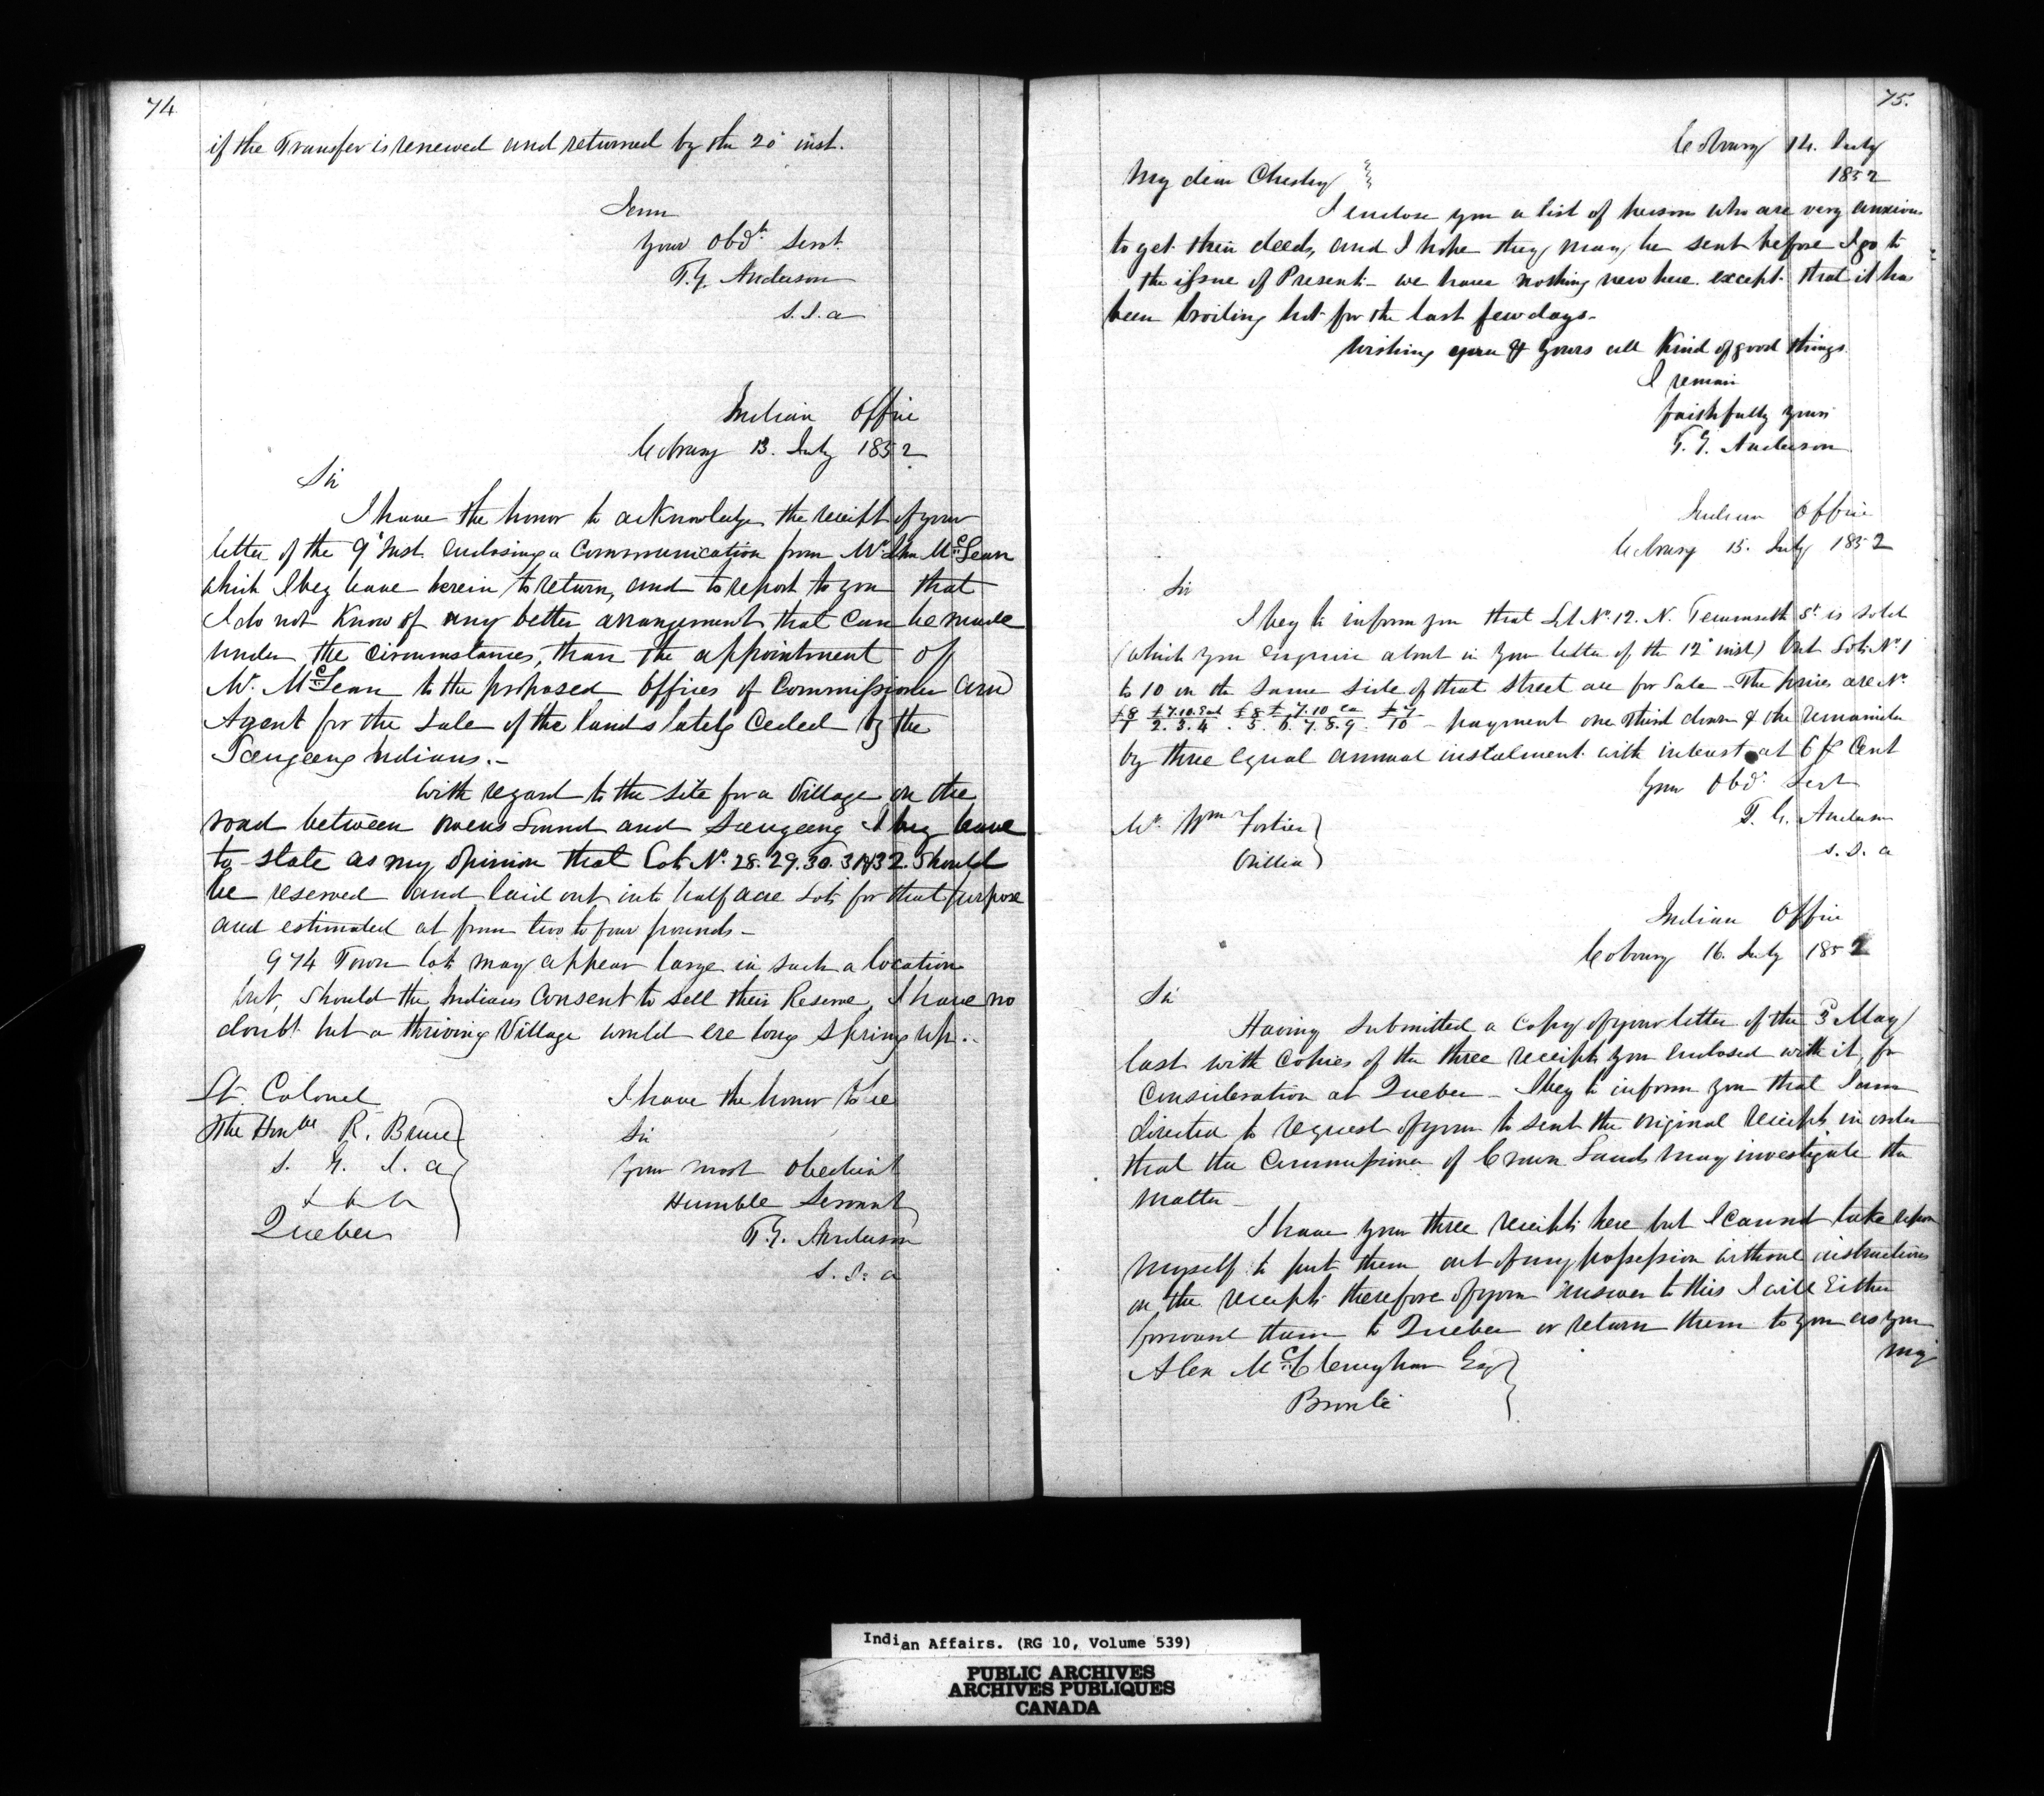 74
if the Transfer is renewed and returned by the 20 inst.
I am
Your Obdt. Servt.
T. G. Anderson
S. I. A
Indian Office
Cobourg 13. July 1852
Sir
I have the honor to acknowledge the receipt of your
letter of the 9' Inst. Enclosing a Communication from Mr. McLean
which I beg leave herein to return, and to report to you that
I do not Know of any better arrangement that Can be made
under the Circumstances, than the appointment of
Mr. McLean to the proposed Offices of Commissioner and
Agent for the Sale of the lands lately Ceded by the
Saugeeng Indians.-
With regard to the Site for a Village on the
road between Owens Sound and Saugeeng I beg leave
to state as my opinion that Lots No. 28. 29. 30. 31 & 32. Should
be reserved and laid out into half acre Lots for that purpose
and estimated at from two to four pounds-
974 Town lots may appear large in such a location
but, Should the Indians Consent to sell their Reserve, I have no
doubt but a thriving Village would ere long Spring up..
Lt. Colonel
The Honble R. Bruce
S. G. I. A
& & &
Quebec
I have the honor to be
Sir
Your most Obedient
Humble Servant
T. G. Anderson
S. I. A
75.
Cobourg 14. July
1852
My dear Chesley
I enclose you a list of persons who are very anxious
to get their deeds, and I hope they may be sent before I go to
the issue of Presents- we have nothing new here. except that it has
been broiling hot for the last few days-
Wishing you & Yours all Kind of good things
I remain
faithfully Yours
T. G. Anderson
Indian Office
Cobourg 15. July 1852
Sir
I beg to inform you that Lot No. 12. N. Tecumseth St. is Sold
(which you enquire about in your letter of the 12' inst) but Lots No. 1
to 10 on the Same Side of that Street are for Sale - The prices are No.
£8 £7.10 Ea £8 £7.10 Ea
1 2. 3. 4. 5. 6. 7. 8. 9. 10 - payment one third down & the remainder
by three Equal annual instalments with interest at 6 pr Cent
Your Obdt. Servt
T. G. Anderson
S. I. A
Mr. Wm Fortier
Orillia
Indian Office
Cobourg 16. July 1852
Sir
Having Submitted a Copy of your letter of the 3d May
last with Copies of the three receipts you Enclosed with it, for
Consideration at Quebec - I beg to inform you that I am
directed to request of you to sent the Original receipts in order
that the Commissioner of Crown Lands may investigate the
Matter-
I have your three receipts here but I cannot take upon
Myself to put them out of my possession without instructions
on the receipt therefore of your answer to this I will Either
forward them to Quebec or return them to you as you
may
Alex McClenaghan Esq
Bronte
Indian Affairs. (RG 10, Volume 539)
PUBLIC ARCHIVES
ARCHIVES PUBLIQUES
CANADA